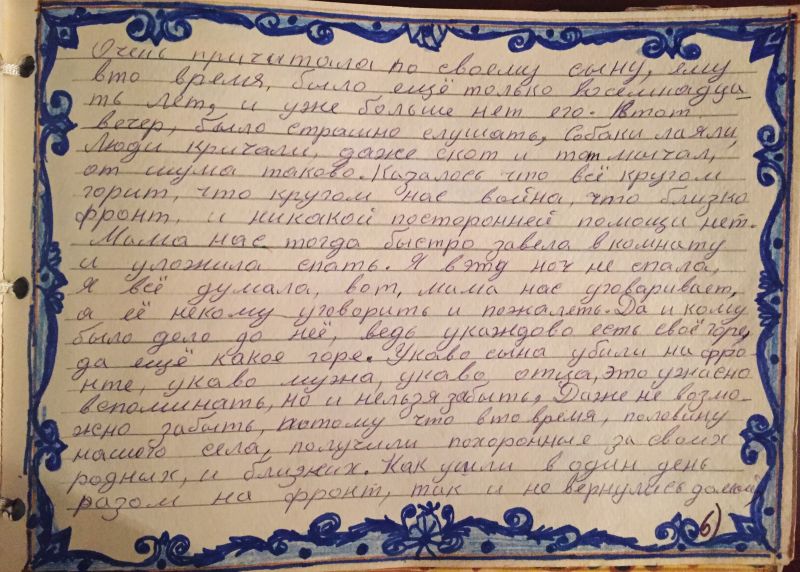 Очень причитала по своему сыну, ему
вто время, было ещё только восемнадца-
ть лет, и уже больше нет его. Втот
вечер, было страшно слушать, Собаки лаяли,
Люди кричали, даже скот и тот мычал,
от шума таково. Казалось что всё кругом
горит, что кругом нас война, что близко
фронт, и никакой посторонней помощи нет.
Мама нас тогда быстро завела в комнату
и уложила спать. Я вэту ноч не спала,
Я всё думала, вот, мама нас уговаривает,
а её некому уговорить и пожалеть. Да и кому
было дело до неё, ведь укаждово есть своё горе,
да ещё какое горе. Укаво сына убили на фро-
нте, укаво мужа, укаво отца, это ужасно
вспоминать, но и нельзя забыть, Даже не возмо-
жно забыть, потому что вто время, половину
нашего села, получили похоронные за своих
родных, и близких. Как ушли в один день
разом на фронт, так и не вернулись домой
6)